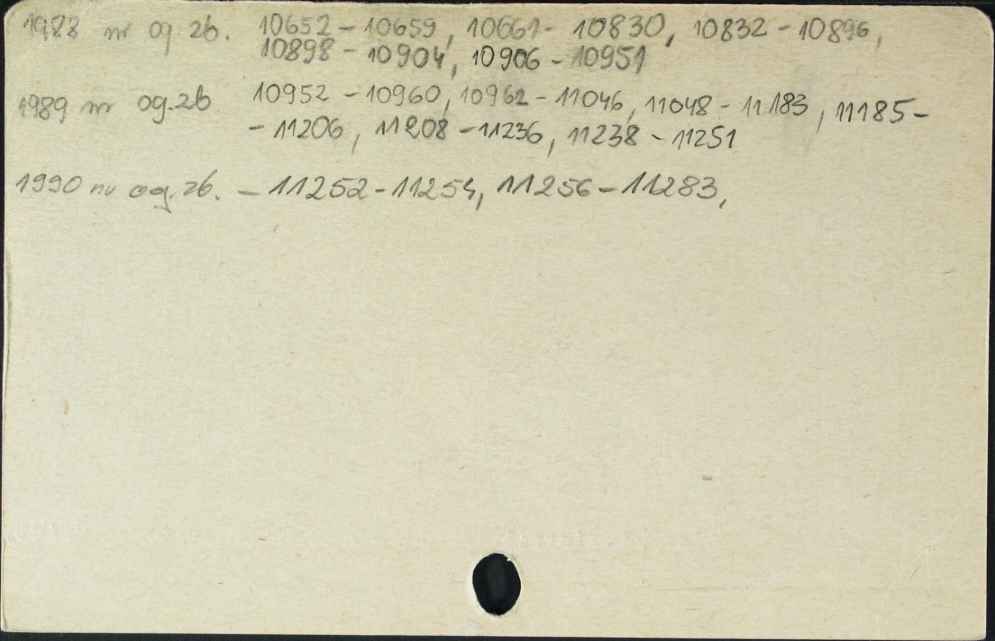 1988 nr og. zb. 10652 - 10659, 10661 - 10830, 10832 - 10896,
10898 - 10904, 10906 - 10951
1989 nr og. zb 10952 - 10960, 10962 - 11046, 11048 - 11183, 11185 -
- 11206, 11208 - 11236, 11238 - 11251
1990 nr og. zb. - 11252 - 11254, 11256 - 11283,